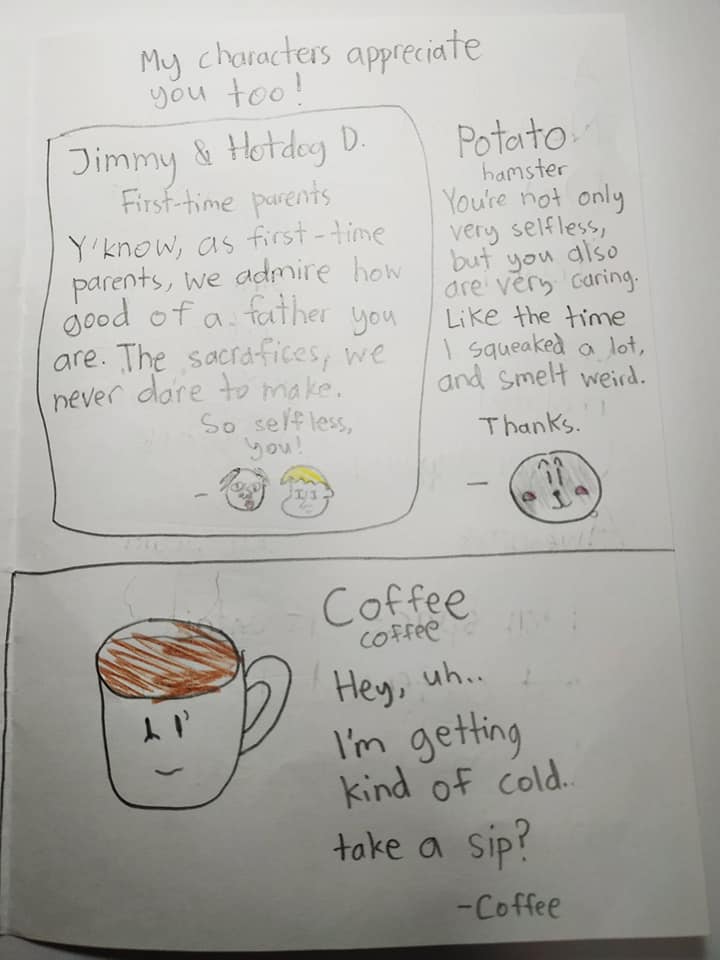 My characters appreciate
you too!
Jimmy & Hotdog D.
First-time parents
Y'know, as first-time
parents, we admire how
good of a father you
are. The sacrafices, we
never dare to make.
So selfless,
you!
-
Potato
hamster
You're not only
very selfless,
but you also
are very caring.
Like the time
I squeaked a lot,
and smelt weird.
Thanks.
-
Coffee
coffee
Hey, uh..
I'm getting
kind of cold..
take a sip?
-Coffee